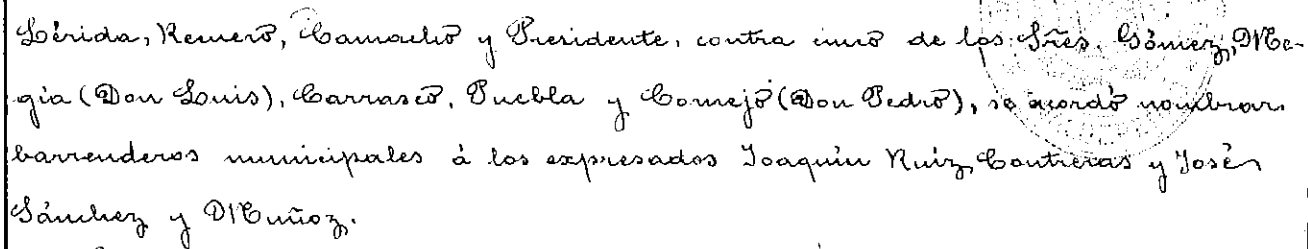 Lérida, Romero, Camacho y Presidente, contra cinco de los Sres. Gómez, Me-
gia (Don Luis), Carrasco, Puebla y Cornejo (Don Pedro), se acordó nombrar
barrenderos municipales á los expresados Joaquín Ruiz Contreras y José
Sánchez y Muñoz.